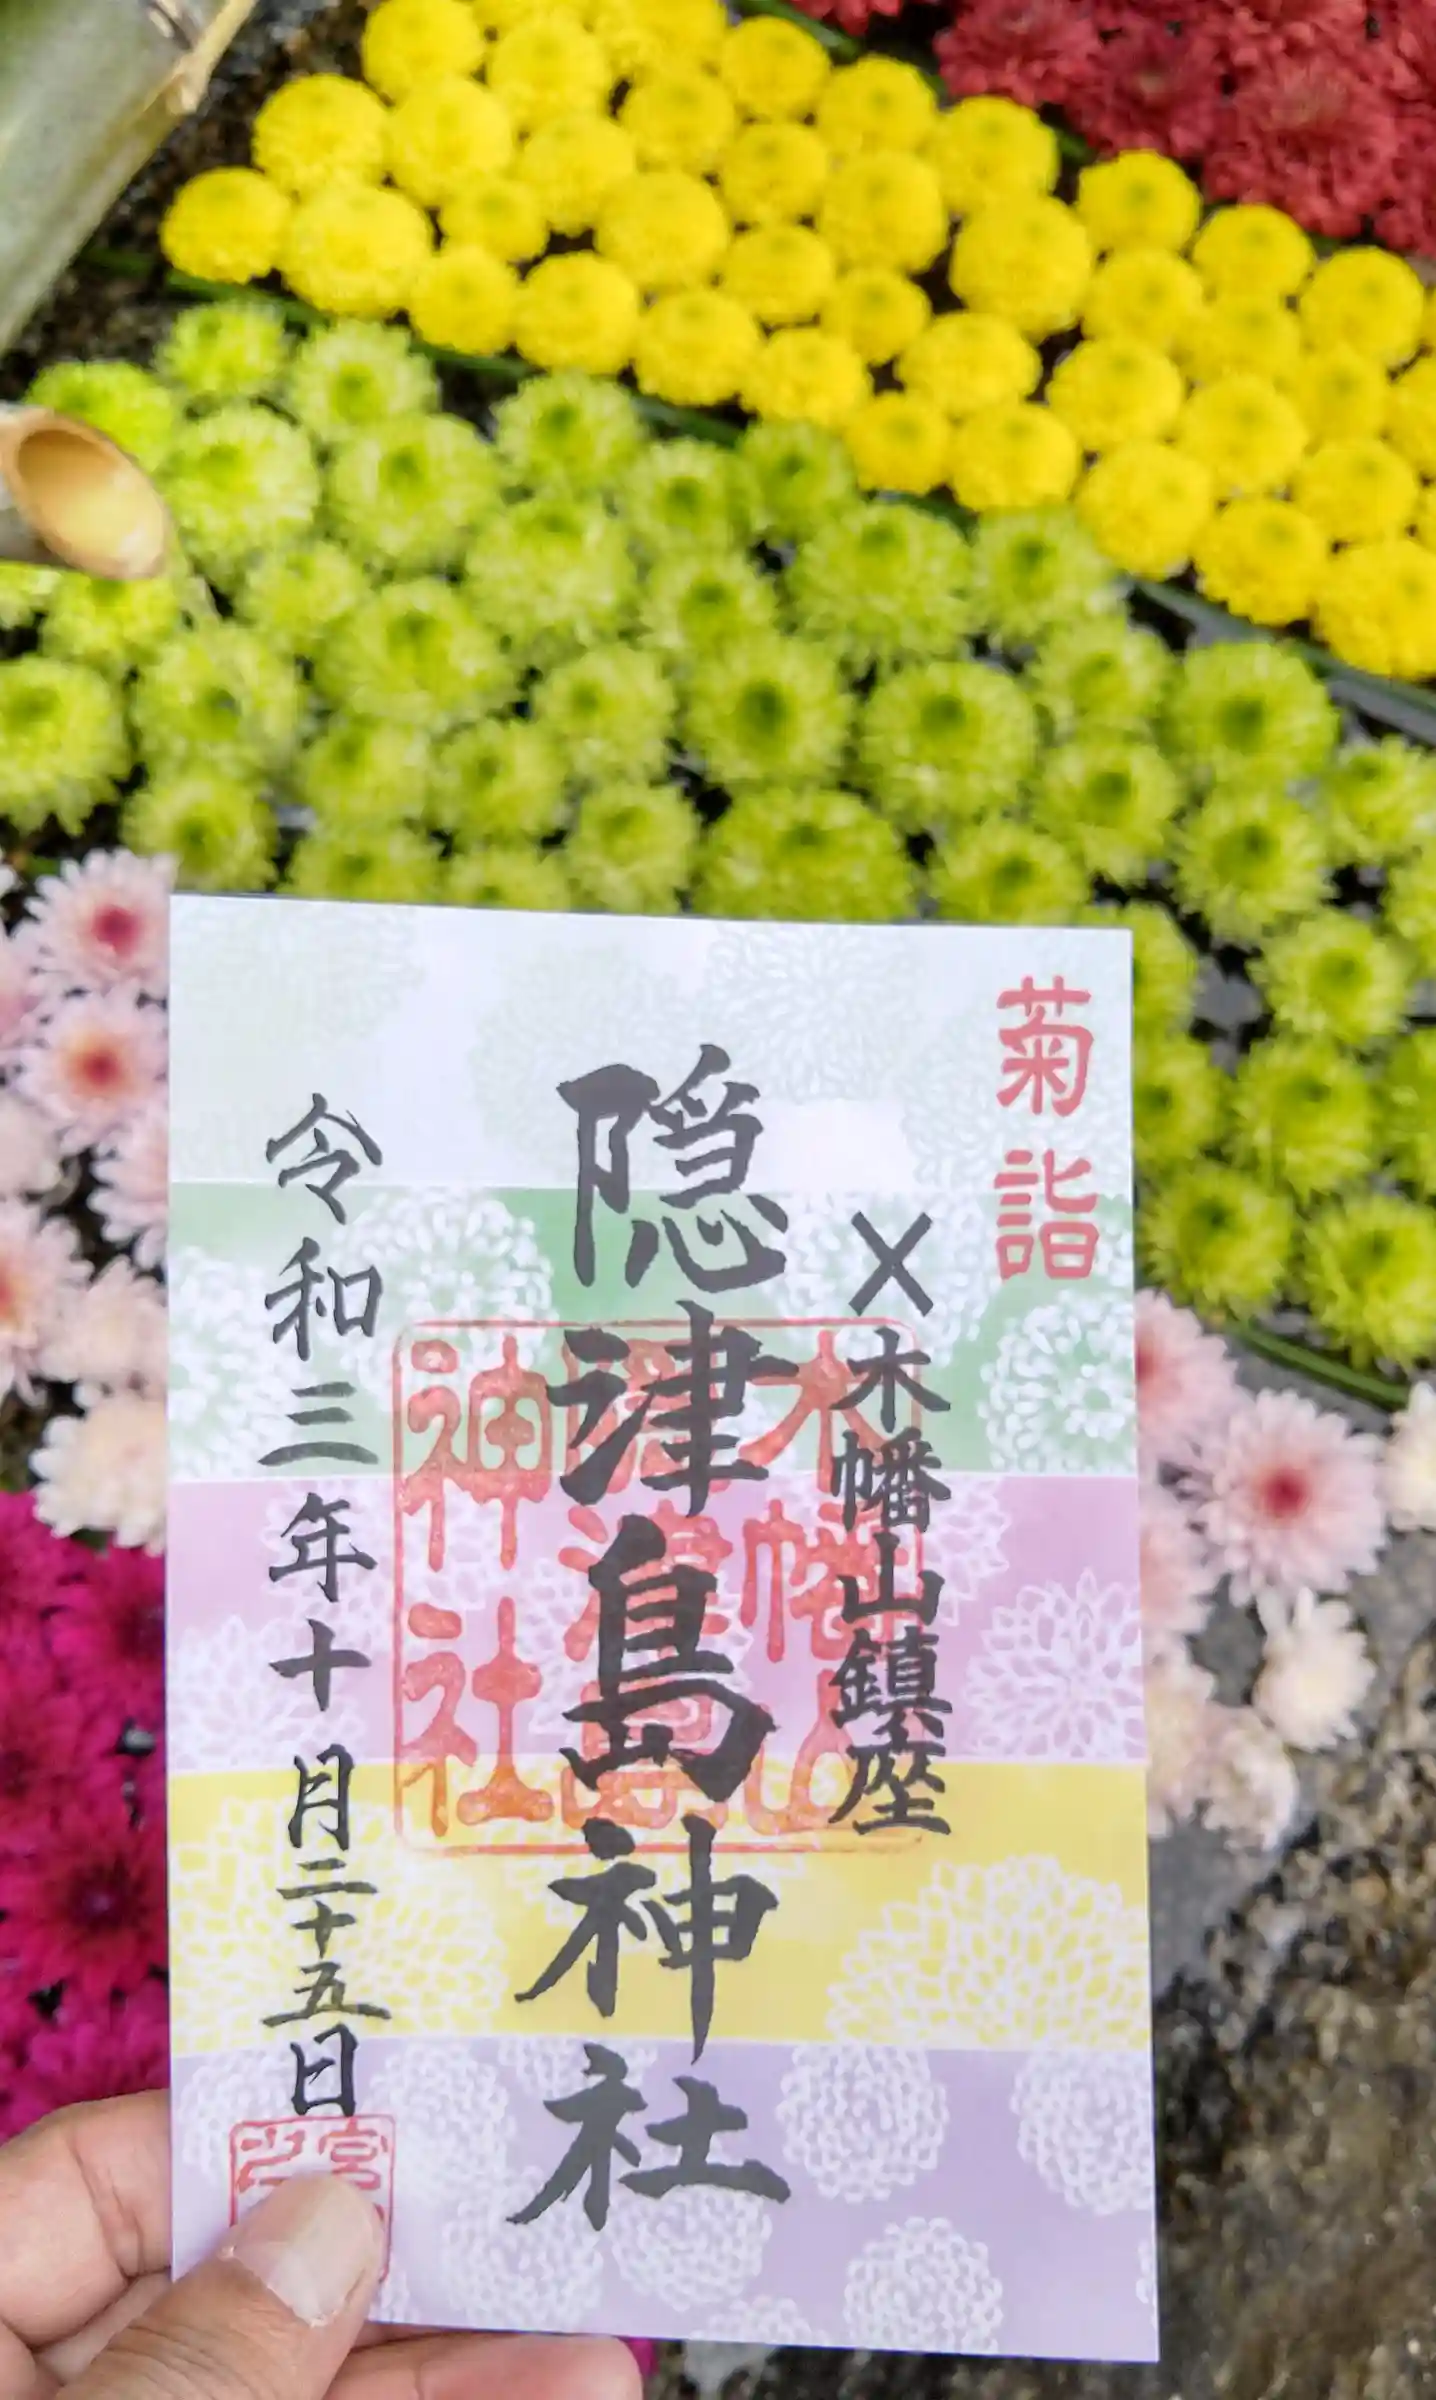 菊詣
〆木幡山鎮座
隠津島神社
令和三年十月二十五日
木幡山
隠津島
神社